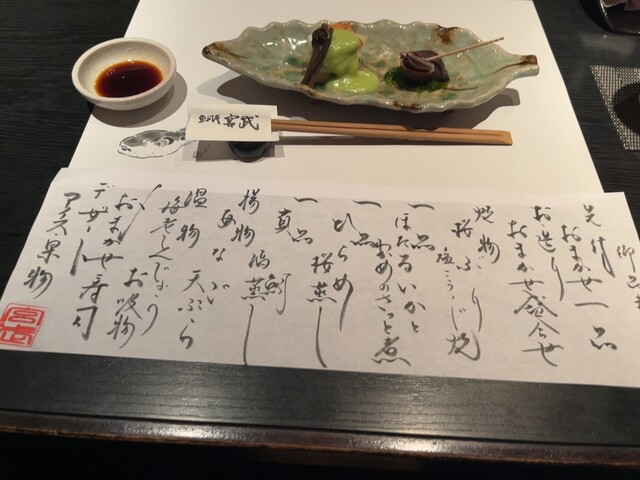 先付
おまかせ一品
お造り
おまかせ盛合せ
焼物
桜ぶり
塩こうじ焼
一品
ほたるいかと
わかめのさっと煮
一品
ひらめ
桜蒸し
一品
揚物
あなご
天ぷら
温物
おまかせ寿司
お吸物
デザート
アイス果物
宮武